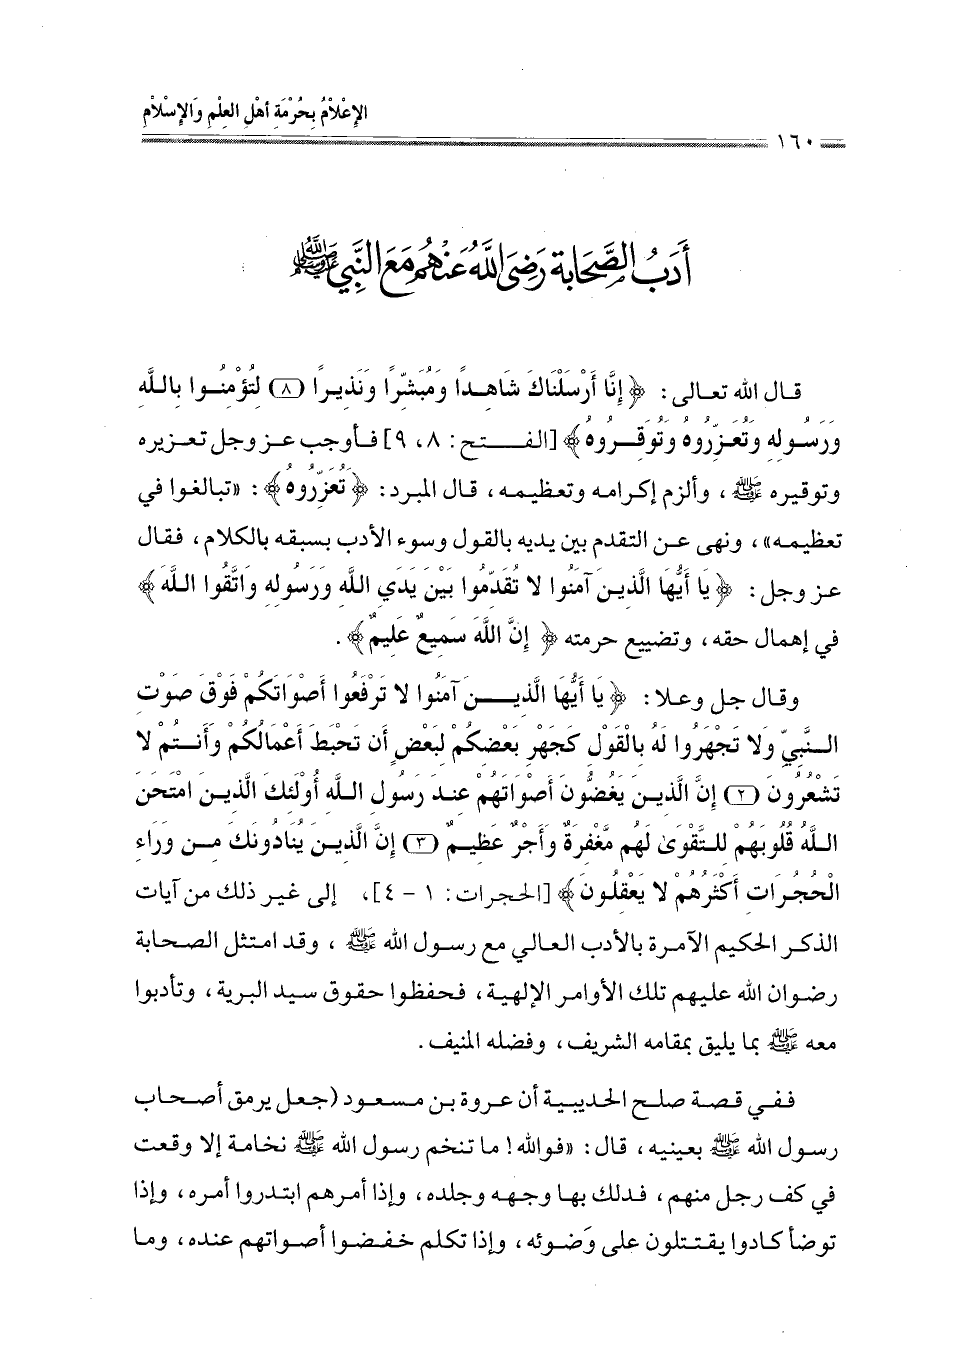 الإِعْلاَمُ بِحُرْمَةِ أهْلِ العِلْمِ وَالإِسْلاَمِ
١٦٠
أَدَبُ الصَّحَابةِ رَضِيَ اللَّهُ عَنْهُم مَعَ النَّبِيِّ ﷺ
قال الله تعالى: ﴿إِنَّا أَرْسَلْنَاكَ شَاهِدًا وَمُبَشِّرًا وَنَذِيرًا (٨) لِتُؤْمِنُوا بِاللَّهِ
وَرَسُولِهِ وَتُعَزِّرُوهُ وَتُوَقِّرُوهُ﴾ [الفتح: ٨، ٩] فأوجب عز وجل تعزيره
وتوقيره ﷺ، وألزم إكرامه وتعظيمه، قال المبرد: ﴿تُعَزِّرُوهُ﴾: «تبالغوا في
تعظيمه»، ونهى عن التقدم بين يديه بالقول وسوء الأدب بسبقه بالكلام، فقال
عز وجل: ﴿يَا أَيُّهَا الَّذِينَ آمَنُوا لا تُقَدِّمُوا بَيْنَ يَدَيِ اللَّهِ وَرَسُولِهِ وَاتَّقُوا اللَّهَ﴾
في إهمال حقه، وتضييع حرمته ﴿إِنَّ اللَّهَ سَمِيعٌ عَلِيمٌ﴾.
وقال جل وعلا: ﴿يَا أَيُّهَا الَّذِينَ آمَنُوا لا تَرْفَعُوا أَصْوَاتَكُمْ فَوْقَ صَوْتِ
النَّبِيِّ وَلا تَجْهَرُوا لَهُ بِالْقَوْلِ كَجَهْرِ بَعْضِكُمْ لِبَعْضٍ أَن تَحْبَطَ أَعْمَالُكُمْ وَأَنتُمْ لا
تَشْعُرُونَ (٢) إِنَّ الَّذِينَ يَغُضُّونَ أَصْوَاتَهُمْ عِندَ رَسُولِ اللَّهِ أُوْلَئِكَ الَّذِينَ امْتَحَنَ
اللَّهُ قُلُوبَهُمْ لِلتَّقْوَىٰ لَهُم مَّغْفِرَةٌ وَأَجْرٌ عَظِيمٌ (٣) إِنَّ الَّذِينَ يُنَادُونَكَ مِن وَرَاءِ
الْحُجُرَاتِ أَكْثَرُهُمْ لا يَعْقِلُونَ﴾ [الحجرات: ١ - ٤]، إلى غير ذلك من آيات
الذكر الحكيم الآمرة بالأدب العالي مع رسول الله ﷺ، وقد امتثل الصحابة
رضوان الله عليهم تلك الأوامر الإلهية، فحفظوا حقوق سيد البرية، وتأدبوا
معه ﷺ بما يليق بمقامه الشريف، وفضله المنيف.
ففي قصة صلح الحديبية أن عروة بن مسعود (جعل يرمق أصحاب
رسول الله ﷺ بعينيه، قال: «فوالله! ما تنخم رسول الله ﷺ نخامة إلا وقعت
في كف رجل منهم، فدلك بها وجهه وجلده، وإذا أمرهم ابتدروا أمره، وإذا
توضأ كادوا يقتتلون على وَضوئه، وإذا تكلم خفضوا أصواتهم عنده، وما